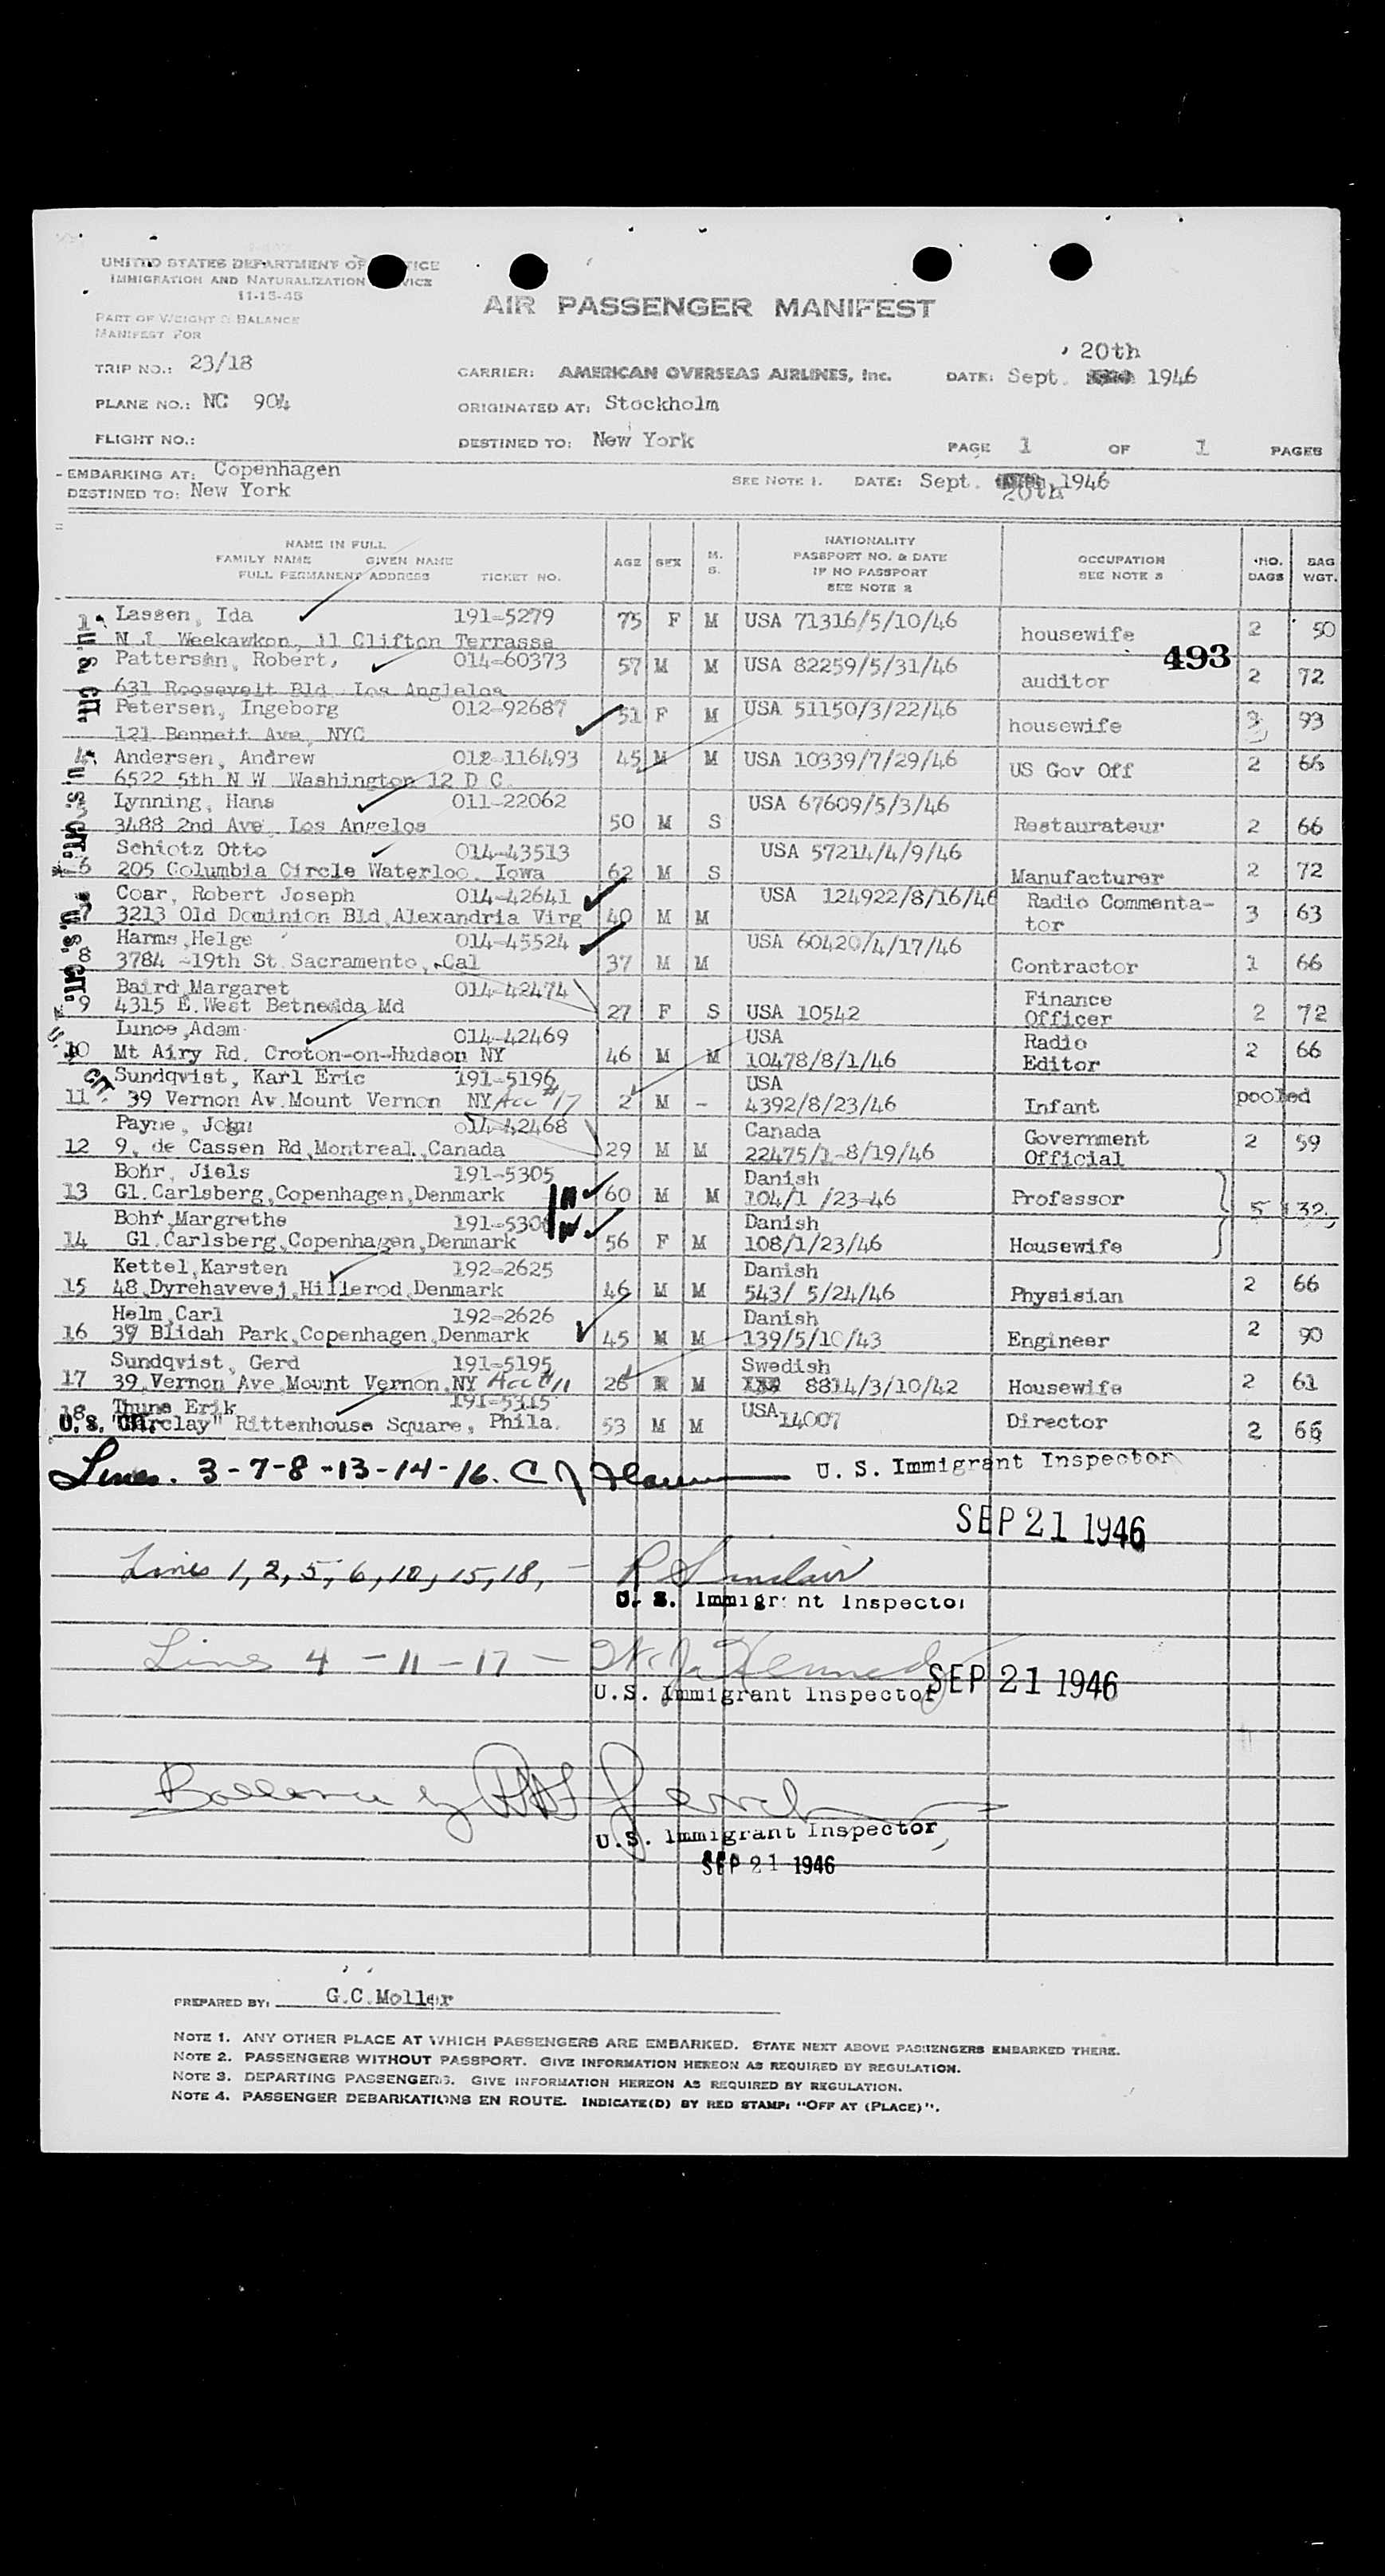 UNITED STATES DEPARTMENT OF
IMMIGRATION AND NATURALIZATION
11-15-45
AIR PASSENGER MANIFEST
PART OF WEIGHT & BALANCE
MANIFEST FOR
20th
TRIP NO.: 23/18 CARRIER: AMERICAN OVERSEAS AIRLINES, Inc. DATE: Sept. 1946
PLANE NO.: NC 904 ORIGINATED AT: Stockholm
FLIGHT NO.: DESTINED TO: New York PAGE 1 OF 1 PAGES
EMBARKING AT: Copenhagen SEE NOTE 1. DATE: Sept. 1946
DESTINED TO: New York 20th
NAME IN FULL
FAMILY NAME GIVEN NAME
FULL PERMANENT ADDRESS TICKET NO. AGE SEX M. S. NATIONALITY PASSPORT NO. & DATE IF NO PASSPORT SEE NOTE 2 OCCUPATION SEE NOTE 3 NO. BAGS BAG WGT.
1 Lassen, Ida 191-5279 75 F M USA 71316/5/10/46 housewife 2 50
N J Weekawkon, 11 Clifton Terrasse
493
Patterson, Robert, 014-60373 57 M M USA 82259/5/31/46 auditor 2 72
631 Roosevelt Bld. Los Anglelos
Petersen, Ingeborg 012-92687 51 F M USA 51150/3/22/46 housewife 3 93
121 Bennett Ave, NYC
4 Andersen, Andrew 012-116493 45 M M USA 10339/7/29/46 US Gov Off 2 66
6522 5th N W Washington 12 D C
Lynning, Hans 011-22062 USA 67609/5/3/46
3488 2nd Ave, Los Angelos 50 M S Restaurateur 2 66
Schiotz Otto 014-43513 USA 57214/4/9/46
6 205 Columbia Circle Waterloo. Iowa 62 M S Manufacturer 2 72
Coar, Robert Joseph 014-42641 USA 124922/8/16/46 Radio Commenta-
7 3213 Old Dominion Bld,Alexandria Virg 40 M M tor 3 63
Harms,Helge 014-45524 USA 60420/4/17/46
8 3784 -19th St.Sacramento, Cal 37 M M Contractor 1 66
Baird,Margaret 014-42474 Finance
9 4315 E.West Betnesda Md 27 F S USA 10542 Officer 2 72
Lunoe,Adam 014-42469 USA Radio
10 Mt Airy Rd. Croton-on-Hudson NY 46 M M 10478/8/1/46 Editor 2 66
Sundqvist, Karl Eric 191-5196 USA
11 39 Vernon Av.Mount Vernon NY Acc #17 2 M - 4392/8/23/46 Infant pooled
Payne, John 014-42468 Canada Government
12 9, de Cassen Rd,Montreal.,Canada 29 M M 22475/1-8/19/46 Official 2 59
Bohr, Jiels 191-5305 Danish
13 Gl.Carlsberg,Copenhagen,Denmark 60 M M 104/1 /23-46 Professor
Bohr,Margrethe 191-530 Danish 5 132
14 Gl.Carlsberg,Copenhagen,Denmark 56 F M 108/1/23/46 Housewife
Kettel,Karsten 192-2625 Danish
15 48,Dyrehavevej,Hillerod,Denmark 46 M M 543/ 5/24/46 Physisian 2 66
Helm,Carl 192-2626 Danish
16 39 Blidah Park,Copenhagen,Denmark 45 M M 139/5/10/43 Engineer 2 90
Sundqvist, Gerd 191-5195 Swedish
17 39,Vernon Ave,Mount Vernon,NY Acc #11 26 M 8814/3/10/42 Housewife 2 61
18 Thune Erik 191-5315 USA 14007
U.S. CIT. Barclay" Rittenhouse Square, Phila. 53 M M Director 2 66
Lines. 3-7-8-13-14-16. U. S. Immigrant Inspector
SEP 21 1946
Lines 1, 2, 5, 6, 10, 15, 18, - R Sinclair
U. S. Immigrant Inspector
Lines 4 - 11 - 17 - W. J. Kennedy
U.S. Immigrant Inspector SEP 21 1946
Balance by
U.S. Immigrant Inspector
SEP 21 1946
PREPARED BY: G.C.Moller
NOTE 1. ANY OTHER PLACE AT WHICH PASSENGERS ARE EMBARKED. STATE NEXT ABOVE PASSENGERS EMBARKED THERE.
NOTE 2. PASSENGERS WITHOUT PASSPORT. GIVE INFORMATION HEREON AS REQUIRED BY REGULATION.
NOTE 3. DEPARTING PASSENGERS. GIVE INFORMATION HEREON AS REQUIRED BY REGULATION.
NOTE 4. PASSENGER DEBARKATIONS EN ROUTE. INDICATE(D) BY RED STAMP: "OFF AT (PLACE)".